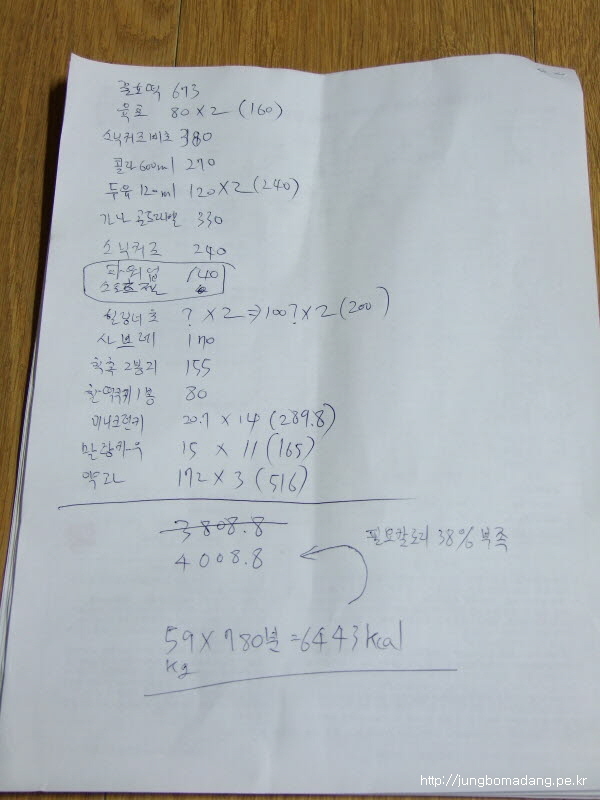 꿀호떡 673
육포 80 X 2 (160)
380
콜라 600ml 270
두유 120ml 120 X 2 (240)
가나 330
스닉커즈 240
파워업 140
스포츠젤
? X 2 ⇒ 100? X 2 (200)
샤브레 170
촉촉 2봉지 155
1봉 80
미니크런키 20.7 X 14 (289.8)
말랑카우 15 X 11 (165)
약과 172 X 3 (516)
3808.8
4008.8
필요칼로리 38% 부족
59 X 780분 = 6443 kcal
kg
http://jungbomadang.pe.kr